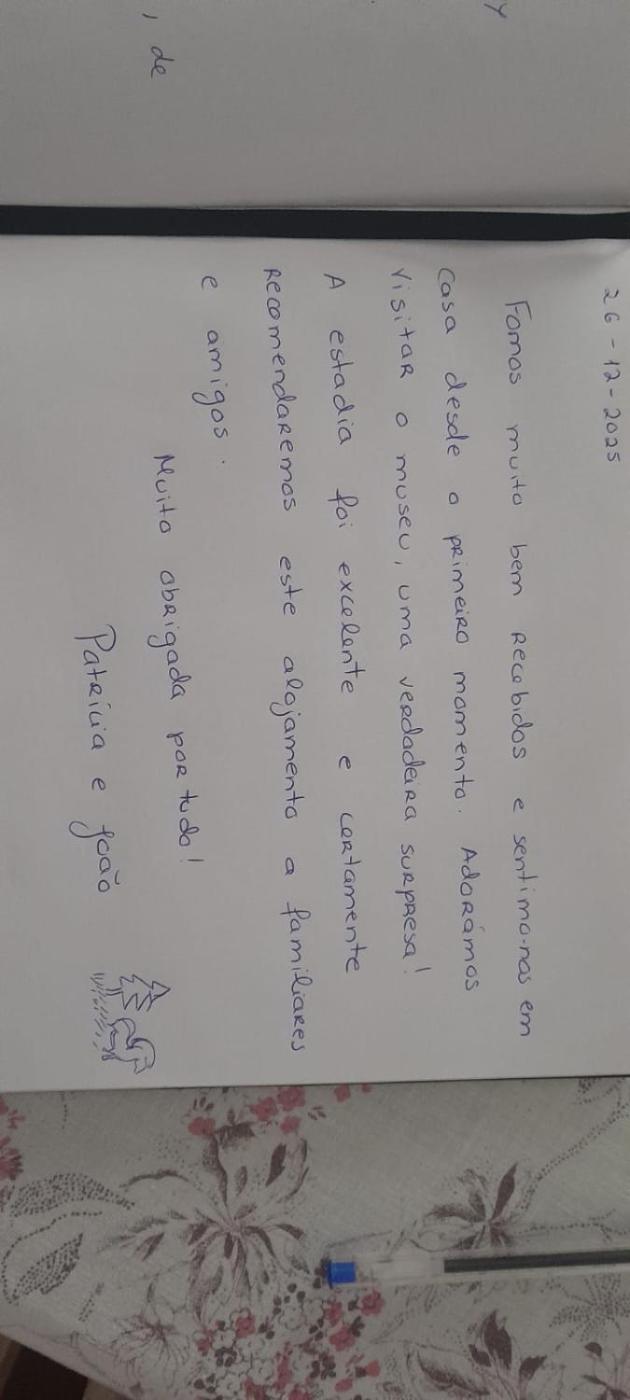 26-12-2025
Fomos muito bem recebidos e sentimo-nos em
casa desde o primeiro momento. Adorámos
visitar o museu, uma verdadeira surpresa!
A estadia foi excelente e certamente
recomendaremos este alojamento a familiares
e amigos.
Muito obrigada por tudo!
Patrícia e João
y
, de